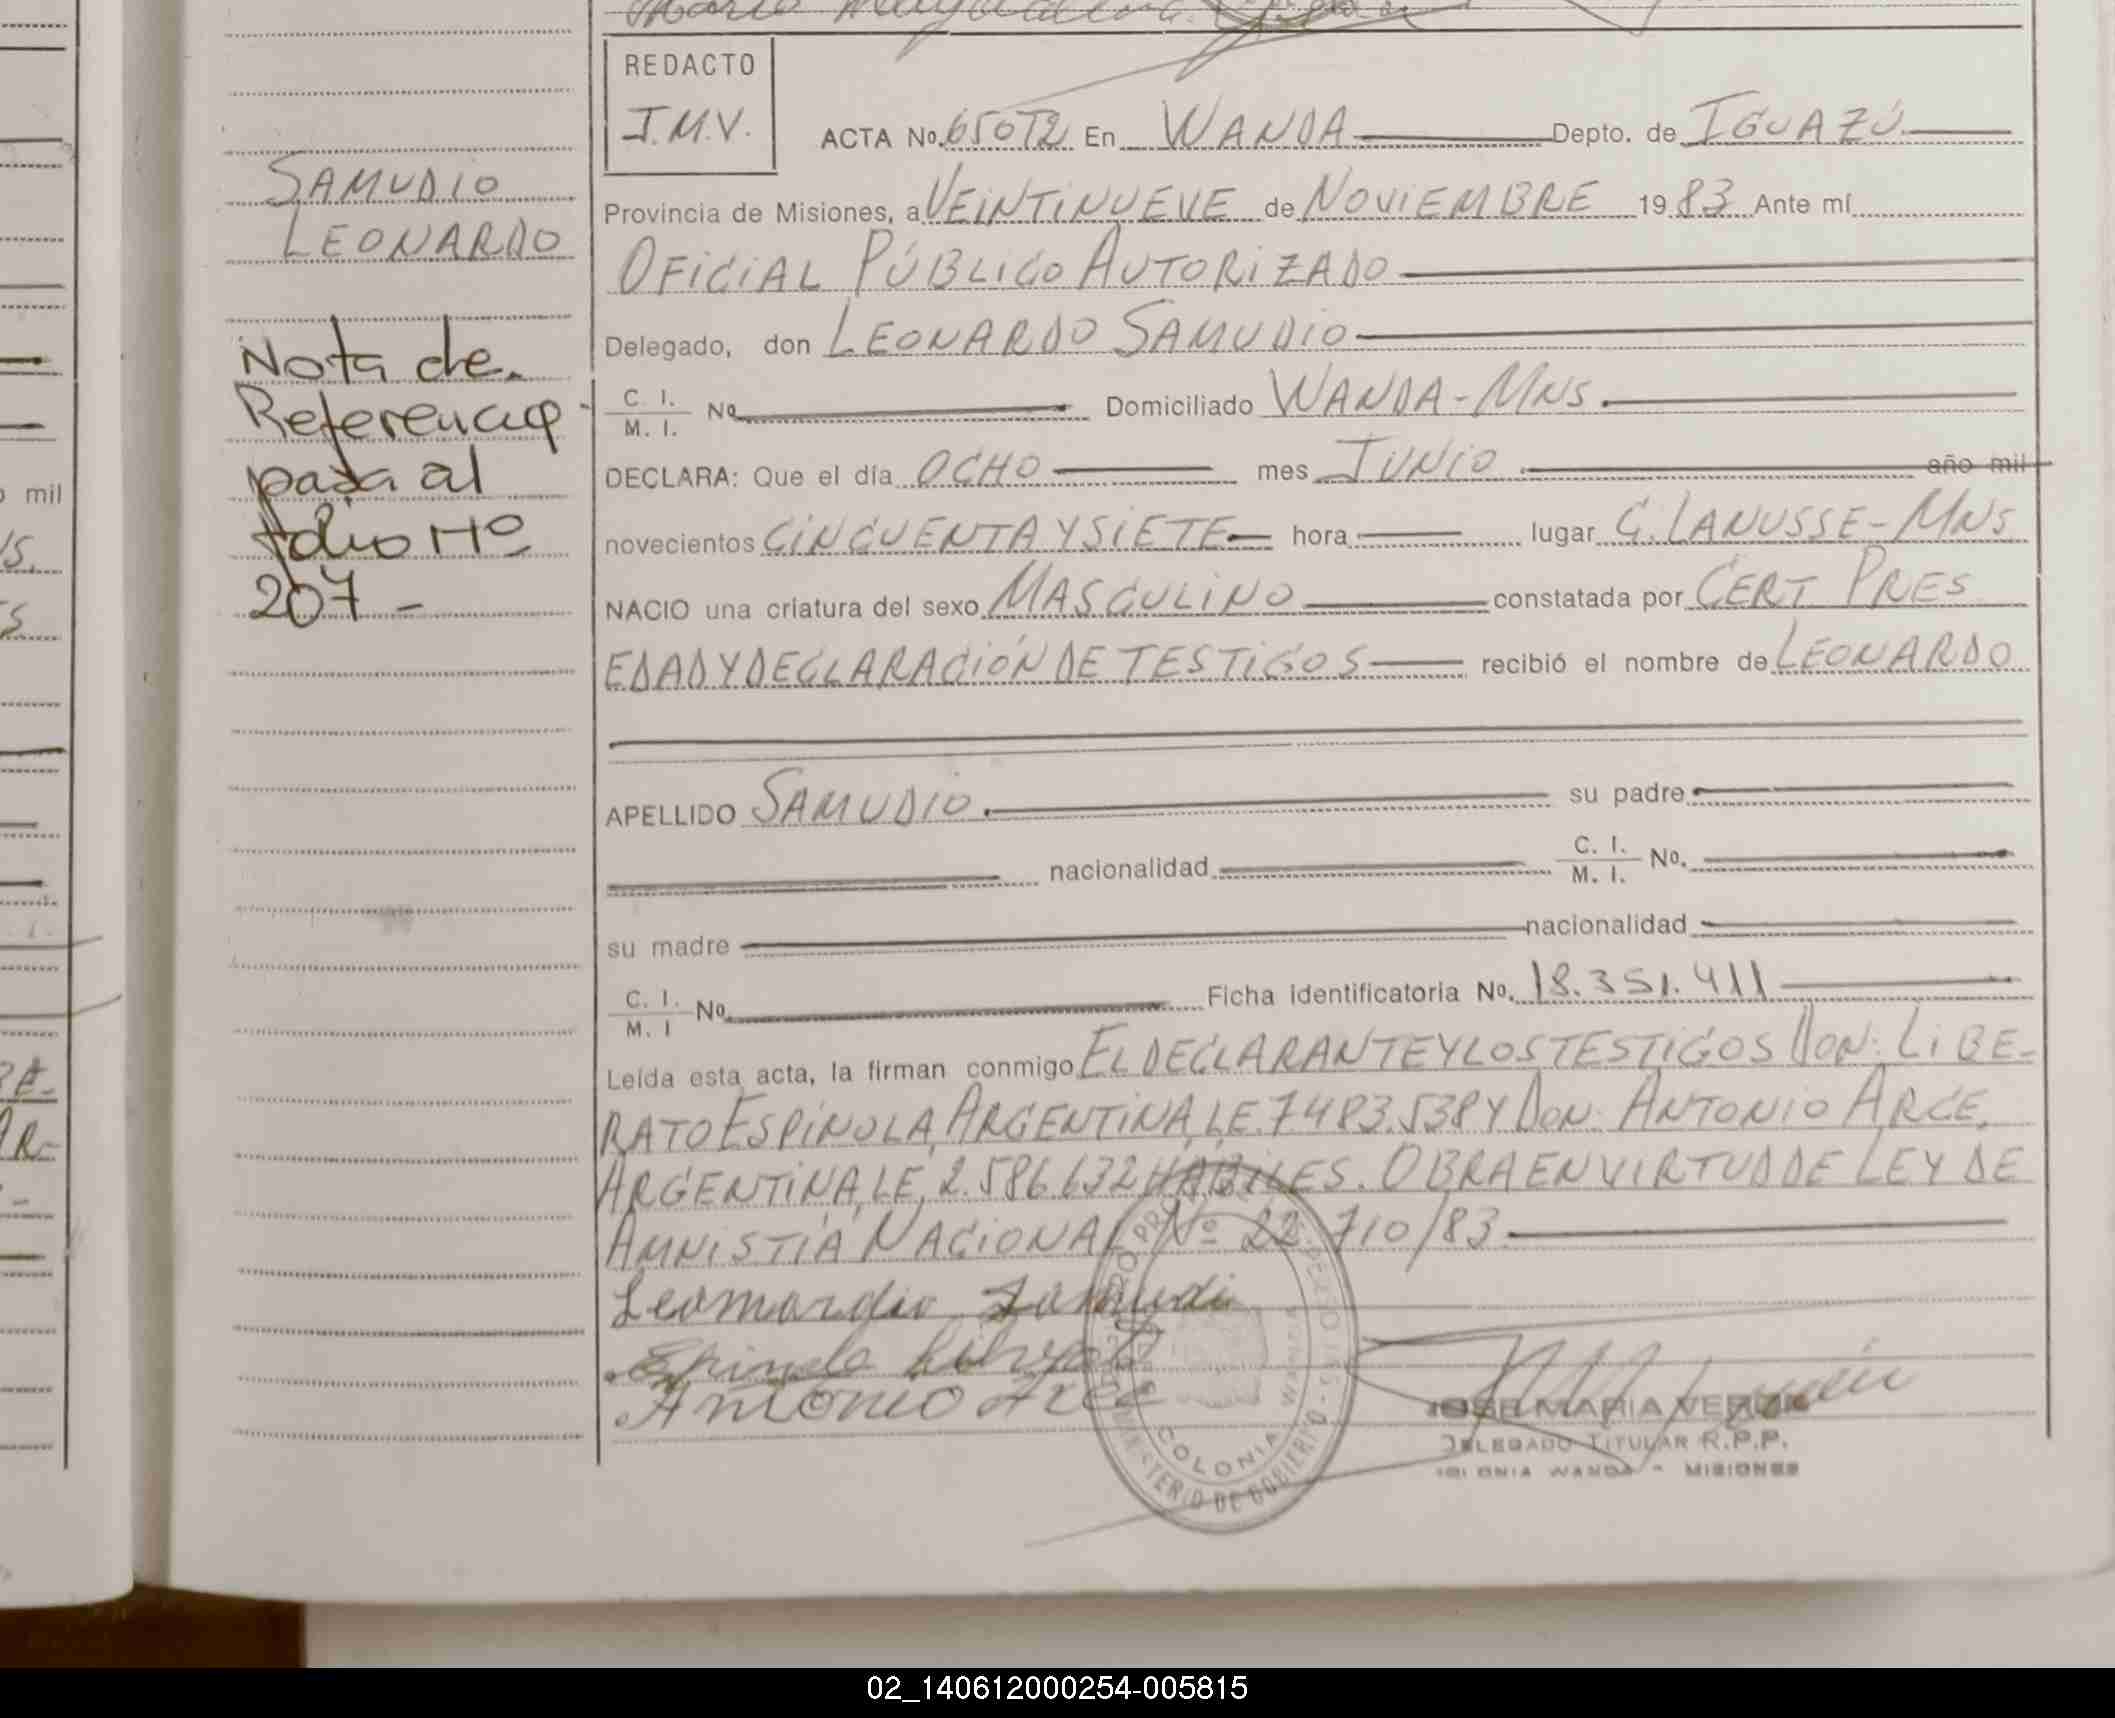 REDACTO
J.M.V.
ACTA No. 650T2 En WANDA Depto. de IGUAZÚ
Provincia de Misiones, a VEINTINUEVE de NOVIEMBRE 1983 Ante mí
OFICIAL PÚBLICO AUTORIZADO
Delegado, don LEONARDO SAMUDIO
C. I. M. I. No Domiciliado WANDA-MNS.
DECLARA: Que el día OCHO mes JUNIO año mil
novecientos CINCUENTA Y SIETE hora lugar G. LANUSSE-MNS
NACIO una criatura del sexo MASCULINO constatada por CERT PRES
EDAD Y DECLARACIÓN DE TESTIGOS recibió el nombre de LEONARDO
APELLIDO SAMUDIO. su padre
nacionalidad C. I. M. I. No.
su madre nacionalidad
C. I. M. I No. Ficha identificatoria No. 18.351.411
Leída esta acta, la firman conmigo EL DECLARANTE Y LOS TESTIGOS DON: LIBE-
RATO ESPÍNOLA, ARGENTINA, LE. 7483.538 Y DON: ANTONIO ARCE,
ARGENTINA, LE, 2.586.632 HÁBILES. OBRA EN VIRTUD DE LEY DE
AMNISTÍA NACIONAL Nº 22.710/83
Leomardio Zamudi
Espinola
Antonio Arce
JOSE MARIA
DELEGADO TITULAR R.P.P.
COLONIA WANDA - MISIONES
COLONIA WANDA
MINISTERIO DE GOBIERNO
SAMUDIO
LEONARDO
Nota de
Referencia
pasa al
folio Nº
207 -
o mil
02_140612000254-005815